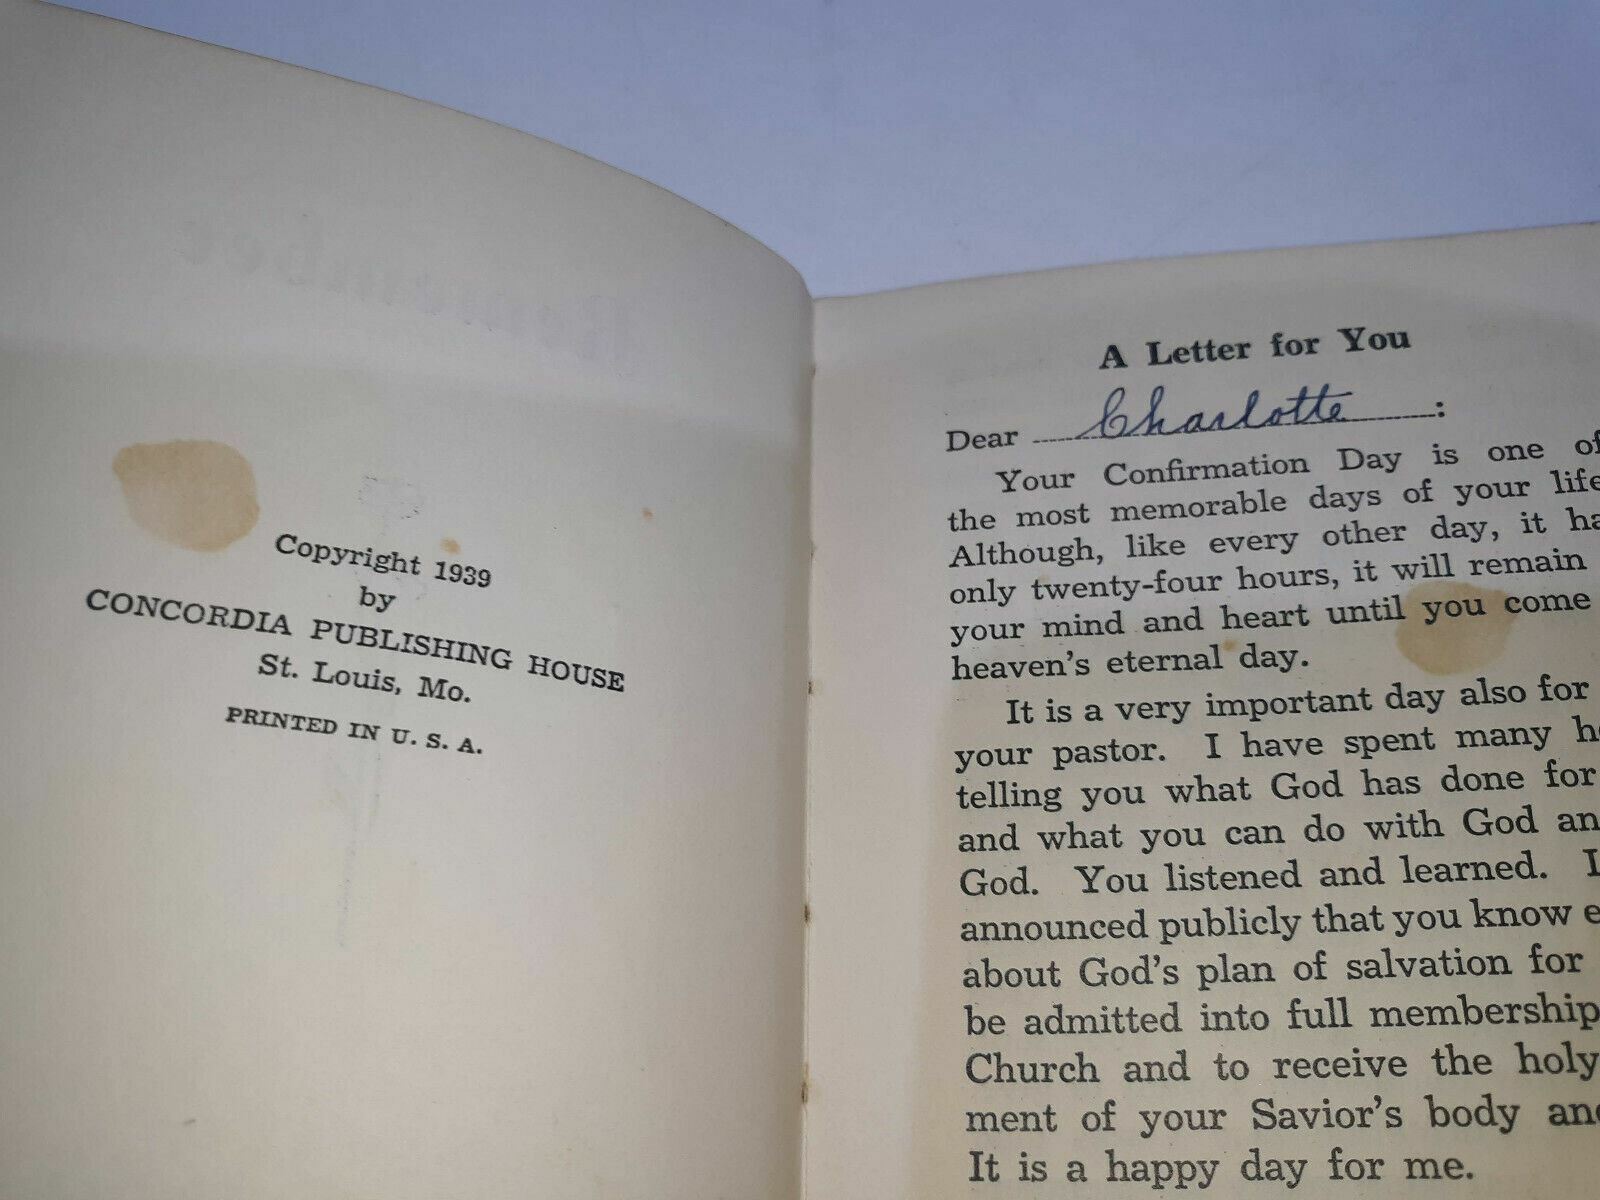 Copyright 1939
by
CONCORDIA PUBLISHING HOUSE
St. Louis, Mo.
PRINTED IN U. S. A.
A Letter for You
Dear Charlotte:
Your Confirmation Day is one of
the most memorable days of your life
Although, like every other day, it ha
only twenty-four hours, it will remain
your mind and heart until you come
heaven's eternal day.
It is a very important day also for
your pastor. I have spent many ho
telling you what God has done for
and what you can do with God an
God. You listened and learned. I
announced publicly that you know e
about God's plan of salvation for
be admitted into full membership
Church and to receive the holy
ment of your Savior's body and
It is a happy day for me.